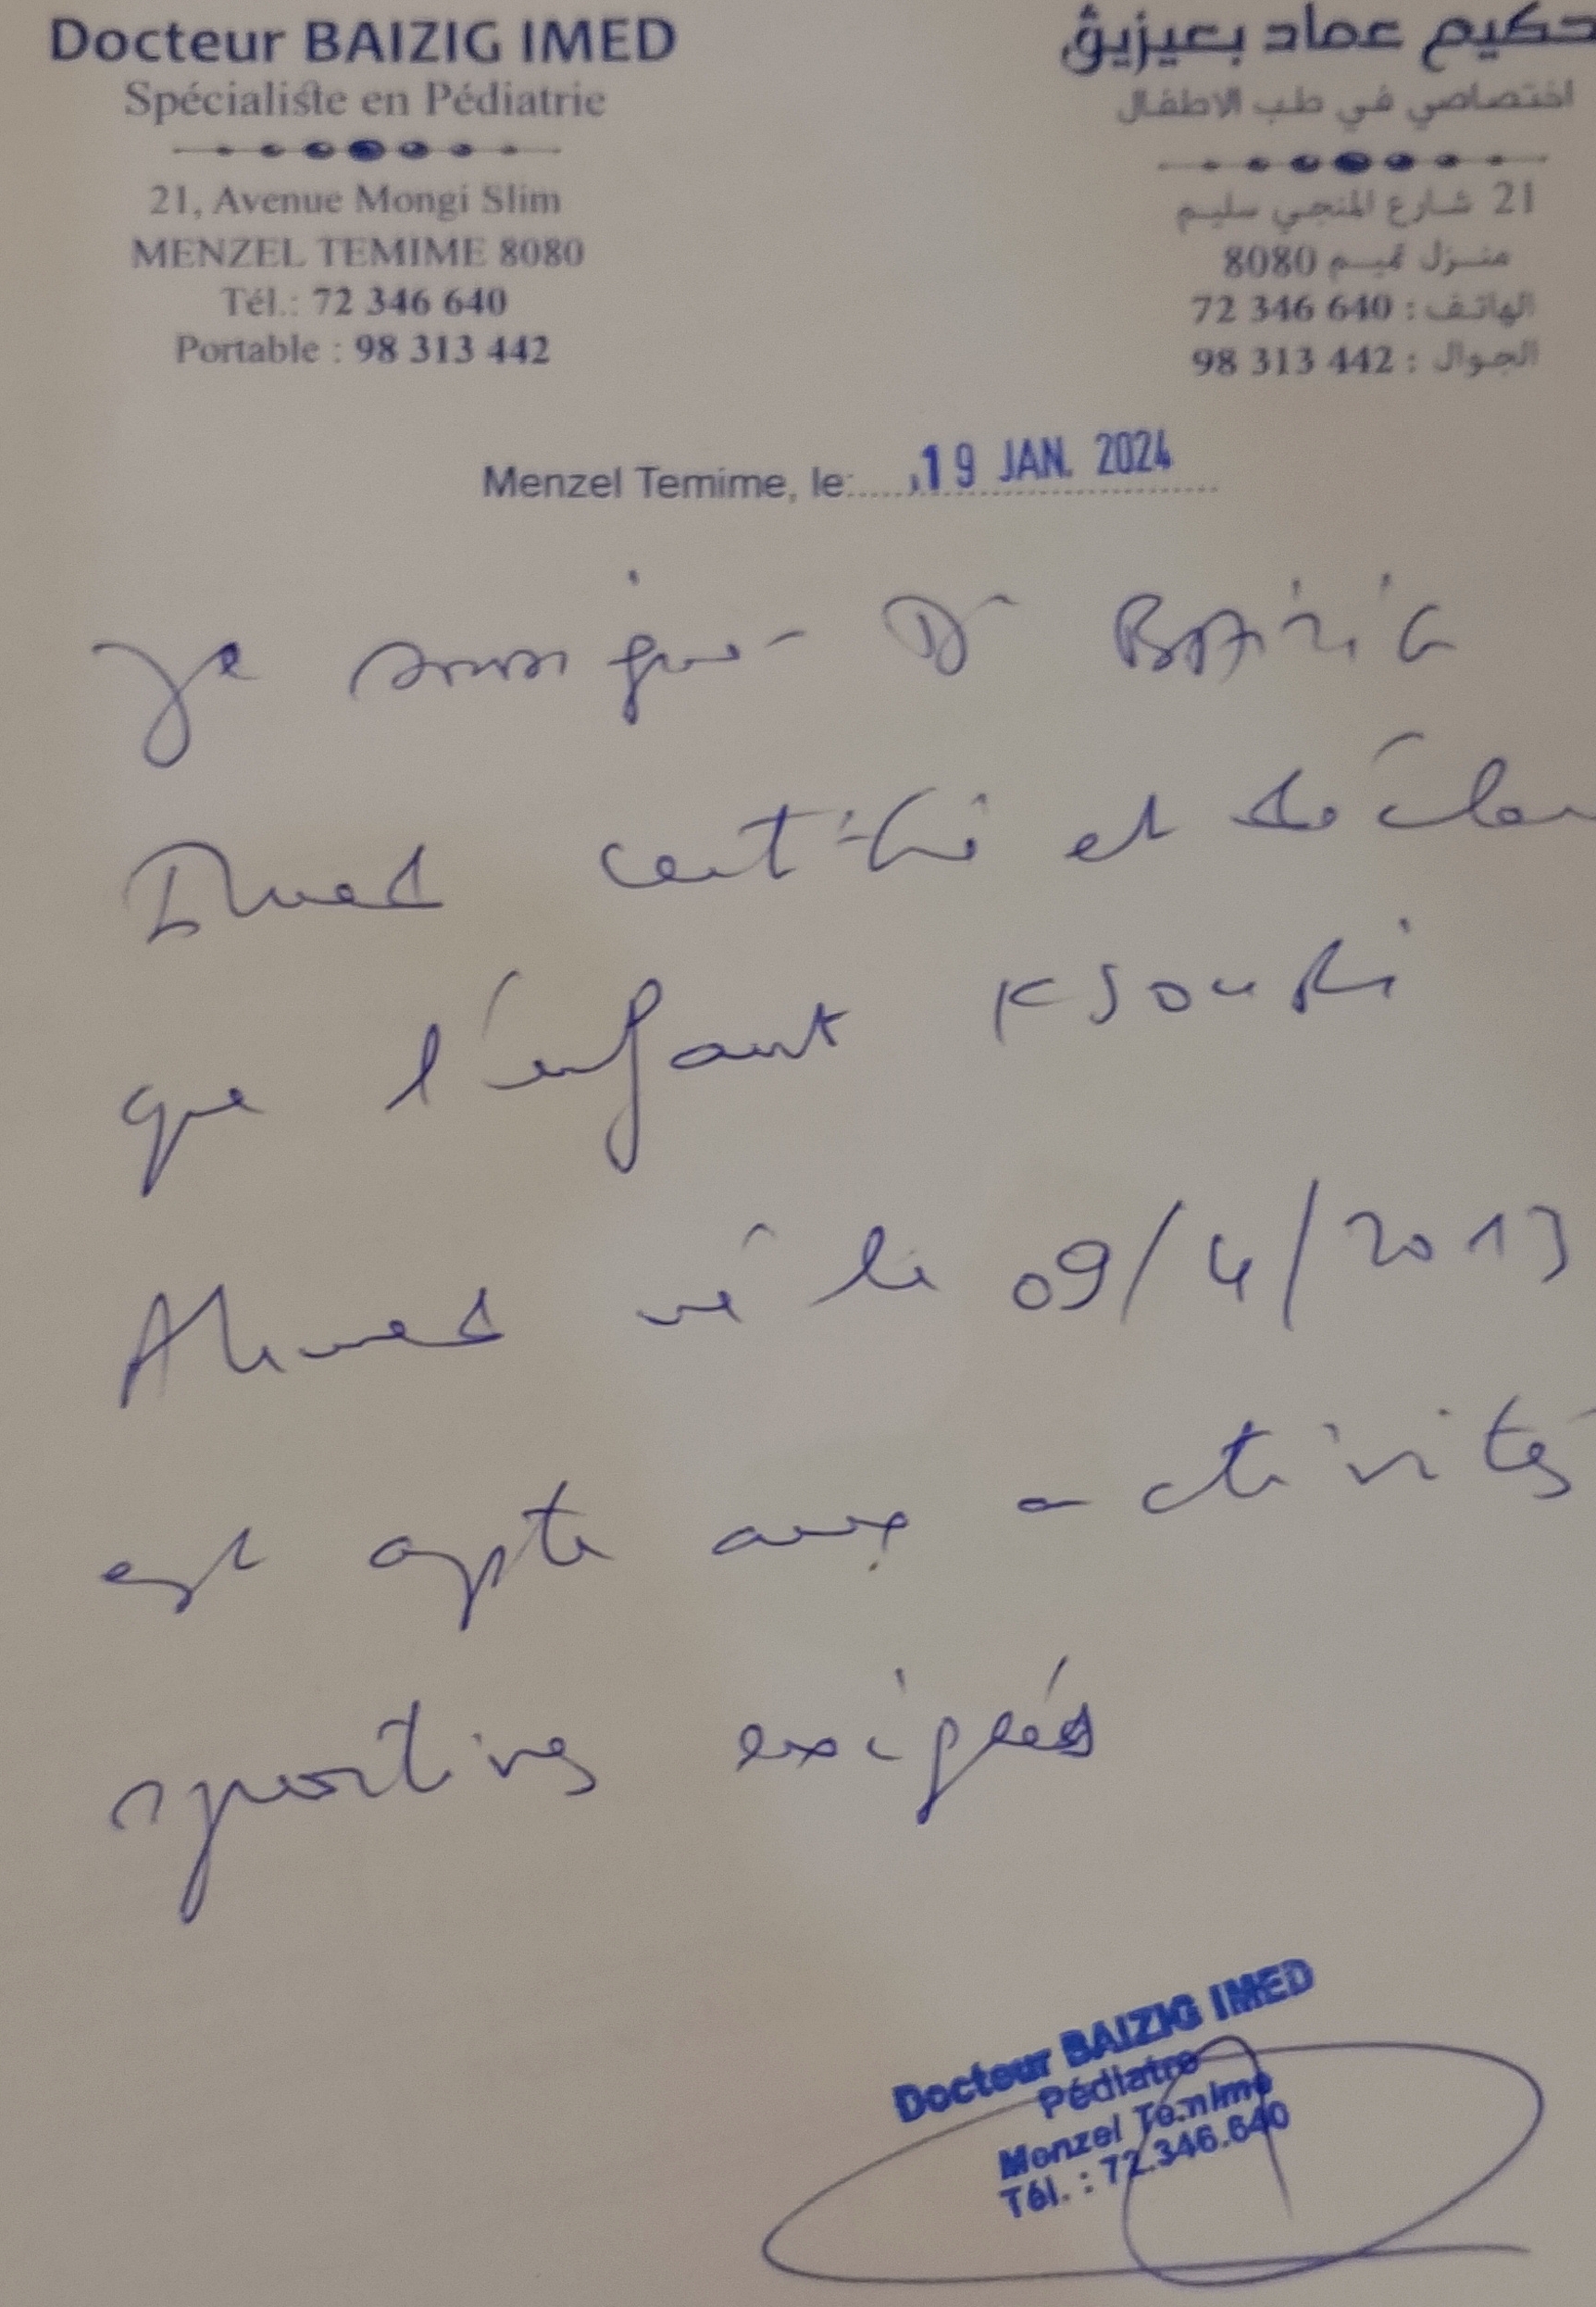 Docteur BAIZIG IMED
Spécialiste en Pédiatrie
21, Avenue Mongi Slim
MENZEL TEMIME 8080
Tél.: 72 346 640
Portable : 98 313 442
حكيم عماد بعيزيق
اختصاصي في طب الاطفال
21 شارع المنجي سليم
منزل تميم 8080
الهاتف : 72 346 640
الجوال : 98 313 442
Menzel Temime, le: 19 JAN. 2024
Je soussigné Dr BAIZIG
Imed certifie et déclare
que l'enfant KSOURI
Ahmed né le 09/4/2013
est apte aux activités
sportives exigées
Docteur BAIZIG IMED
Pédiatre
Menzel Temime
Tél. : 72.346.640